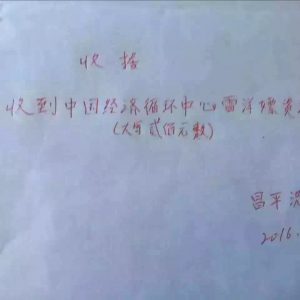 收据
收到中国经济循环中心雷洋嫖资
(大写贰佰元整)
昌平
2016.